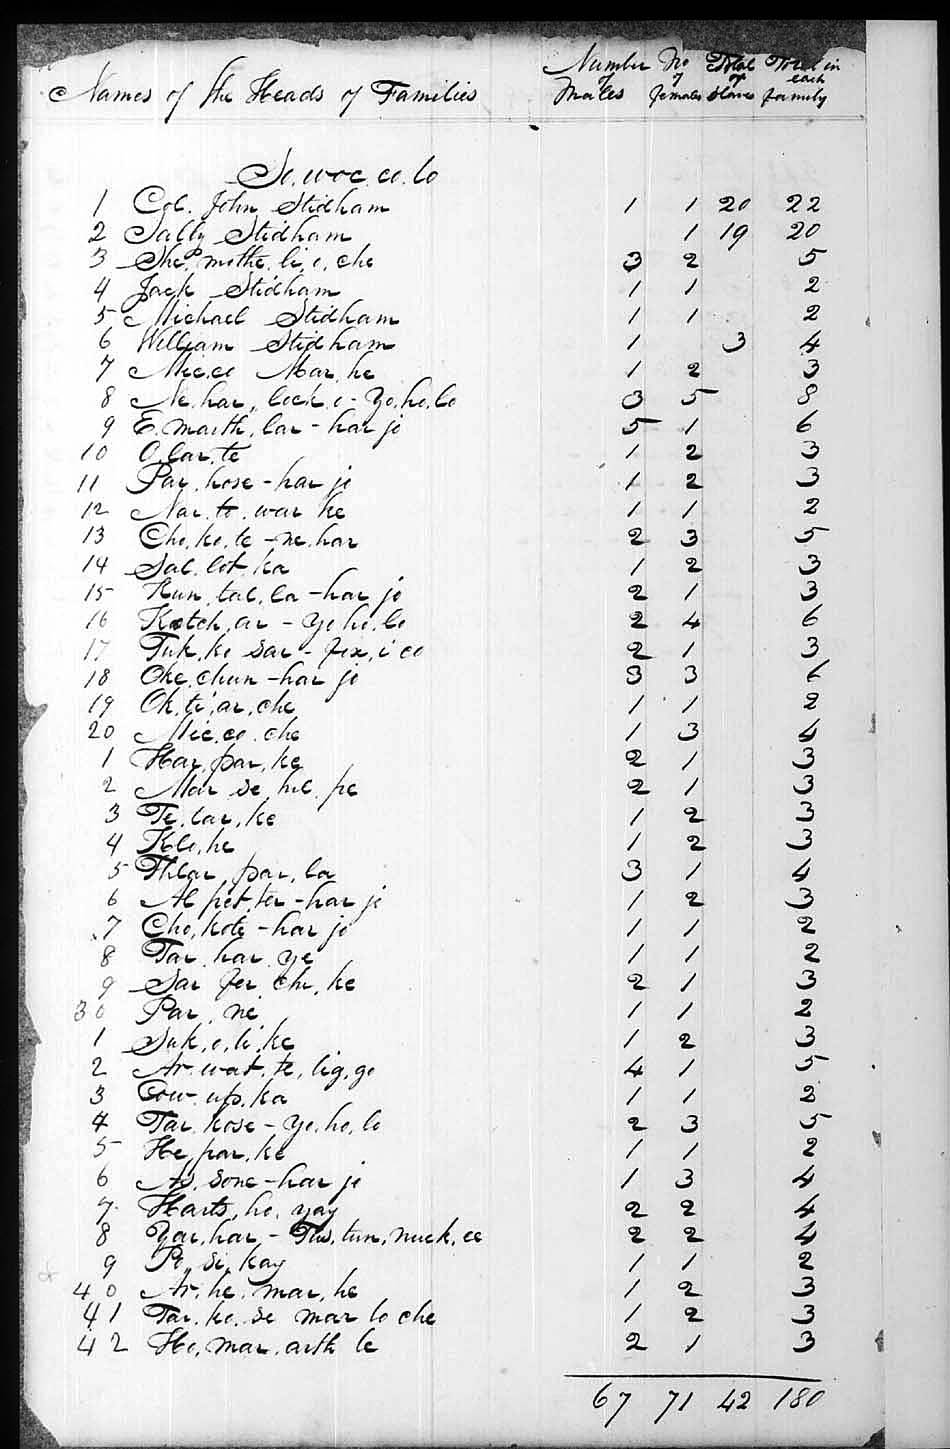 Names of the Heads of Families Number of Males No of females Total of Slaves Total in each family
So.woc.co.lo
1 Col. John Stidham 1 1 20 22
2 Sally Stidham 1 19 20
3 She,mothe.li,i,che 3 2 5
4 Jack Stidham 1 1 2
5 Michael Stidham 1 1 2
6 William Stidham 1 3 4
7 Mic.co Mar,he 1 2 3
8 Ne.har,lock,o-Yo.ho.lo 3 5 8
9 E.marth,lar-harjo 5 1 6
10 O.lar.te 1 2 3
11 Par.hose-harjo 1 2 3
12 Nar.to.war ke 1 1 2
13 Cho.ko.te-ne.har 2 3 5
14 Sal.lot.ka 1 2 3
15 Kun,tal.la-harjo 2 1 3
16 Kotch,ar-Yo ho.lo 2 4 6
17 Tuk.ke sar-fix,i co 2 1 3
18 Oke.chun-harjo 3 3
19 Ok.ti,ar,che 1 1 2
20 Mic.co.che 1 3 4
1 Har,par,ke 2 1 3
2 Mar se,hil.pe 2 1 3
3 Te.lar,ke 1 2 3
4 Klo,he 1 2 3
5 Thlar,par,la 3 1 4
6 Al pet,ter-harjo 1 2 3
7 Cho,kote-harjo 1 1 2
8 Tar.har.ye 1 1 2
9 Sar fer che,ke 2 1 3
30 Par,ne 1 1 2
1 Suk,o,li,ke 1 2 3
2 Ar.wat,te,lig,go 4 1 5
3 Cow.up.ka 1 1 2
4 Tar.kose-Yo.ho,lo 2 3 5
5 He,par,ke 1 1 2
6 As,sone-harjo 1 3 4
7 Harts,ho,yay 2 2 4
8 Yar,har,-Tus,tun,nuck,ee 2 2 4
9 Po,si,kay 1 1 2
40 Ar,he.mar,he 1 2 3
41 Tar.ko.se mar lo che 1 2 3
42 Ho,mar.arth le 2 1 3
67 71 42 180